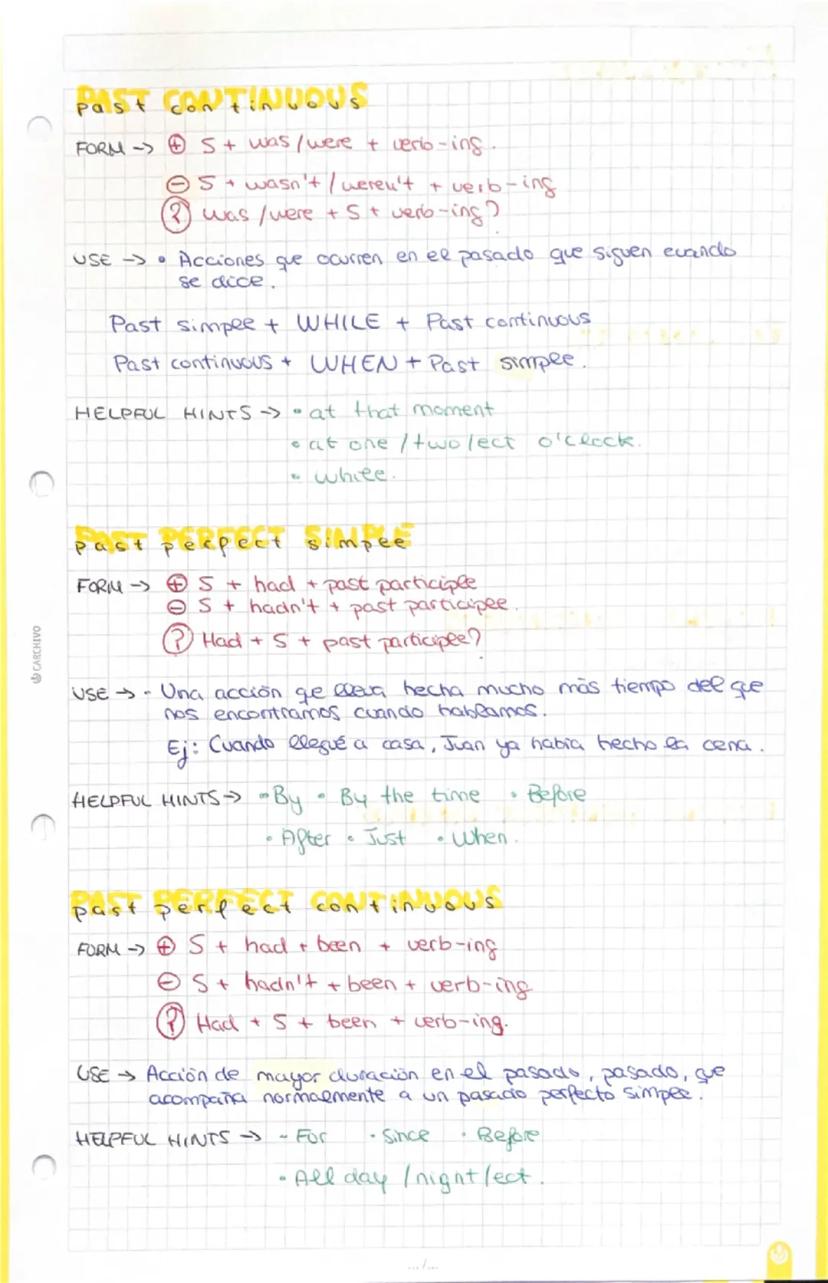 PAST CONTINUOUS
past continuous
FORM -> ⊕ S + was/were + verb-ing.
⊖ S + wasn't/weren't + verb-ing
? Was/were + S + verb-ing?
USE -> • Acciones que ocurren en el pasado que siguen cuando
se dice.
Past simple + WHILE + Past continuous
Past continuous + WHEN + Past simple.
HELPFUL HINTS -> • at that moment
• at one/two/ect o'clock.
• while.
PAST PERFECT SIMPLE
past perfect simple
FORM -> ⊕ S + had + past participle
⊖ S + hadn't + past participle.
? Had + S + past participle?
USE -> - Una acción qe lleva hecha mucho más tiempo del que
nos encontramos cuando hablamos.
Ej: Cuando llegué a casa, Juan ya había hecho la cena.
HELPFUL HINTS -> • By • By the time • Before
• After • Just • When.
PAST PERFECT CONTINUOUS
past perfect continuous
FORM -> ⊕ S + had + been + verb-ing
⊖ S + hadn't + been + verb-ing
? Had + S + been + verb-ing.
USE -> Acción de mayor duración en el pasado, pasado, que
acompaña normalmente a un pasado perfecto simple.
HELPFUL HINTS -> - For • Since • Before
• All day/night/ect.
CARCHIVO
.../...